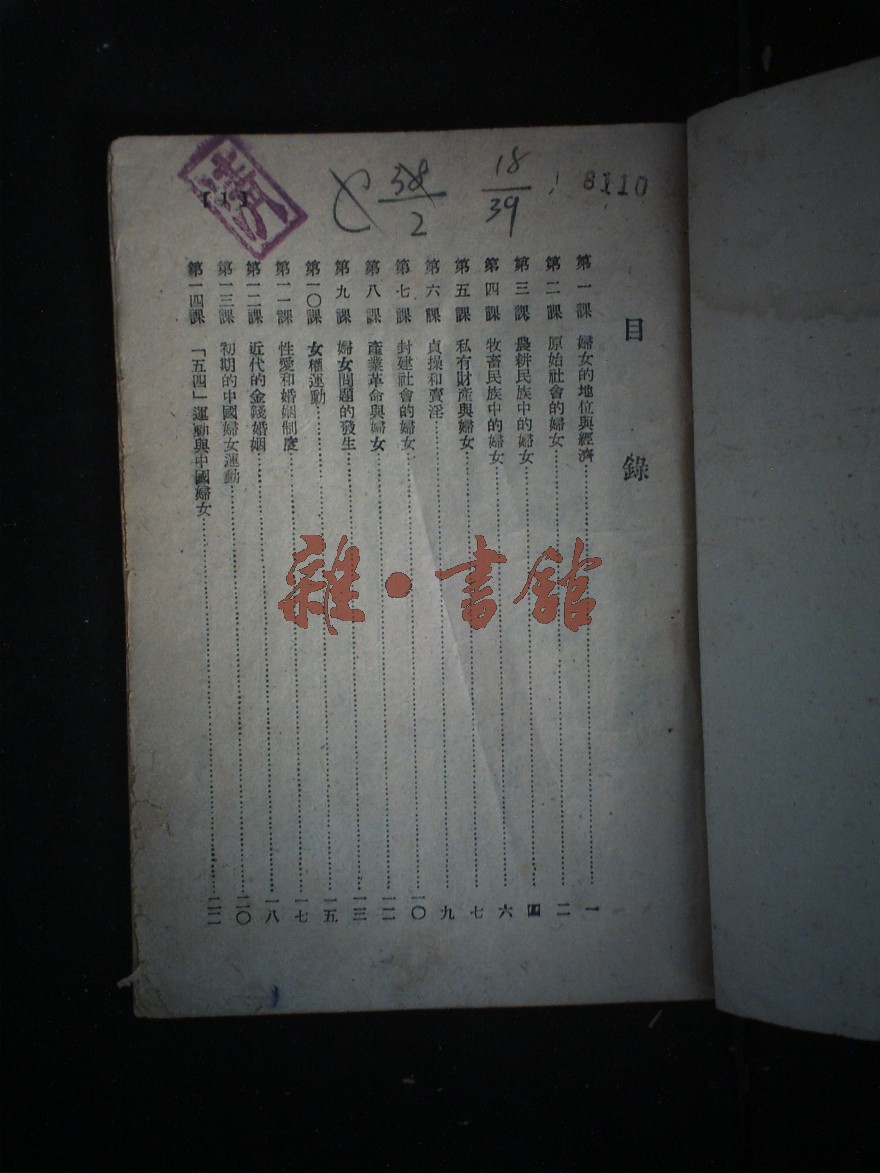 8110
18
39
58
2
【1】
目錄
第一課 婦女的地位與經濟……一
第二課 原始社會的婦女……二
第三課 農耕民族中的婦女……四
第四課 牧畜民族中的婦女……六
第五課 私有財產與婦女……七
第六課 貞操和賣淫……九
第七課 封建社會的婦女……一〇
第八課 產業革命與婦女……一二
第九課 婦女問題的發生……一三
第一〇課 女權運動……一五
第一一課 性愛和婚姻制度……一七
第一二課 近代的金錢婚姻……一八
第一三課 初期的中國婦女運動……二〇
第一四課 「五四」運動與中國婦女……二二
雜·書館